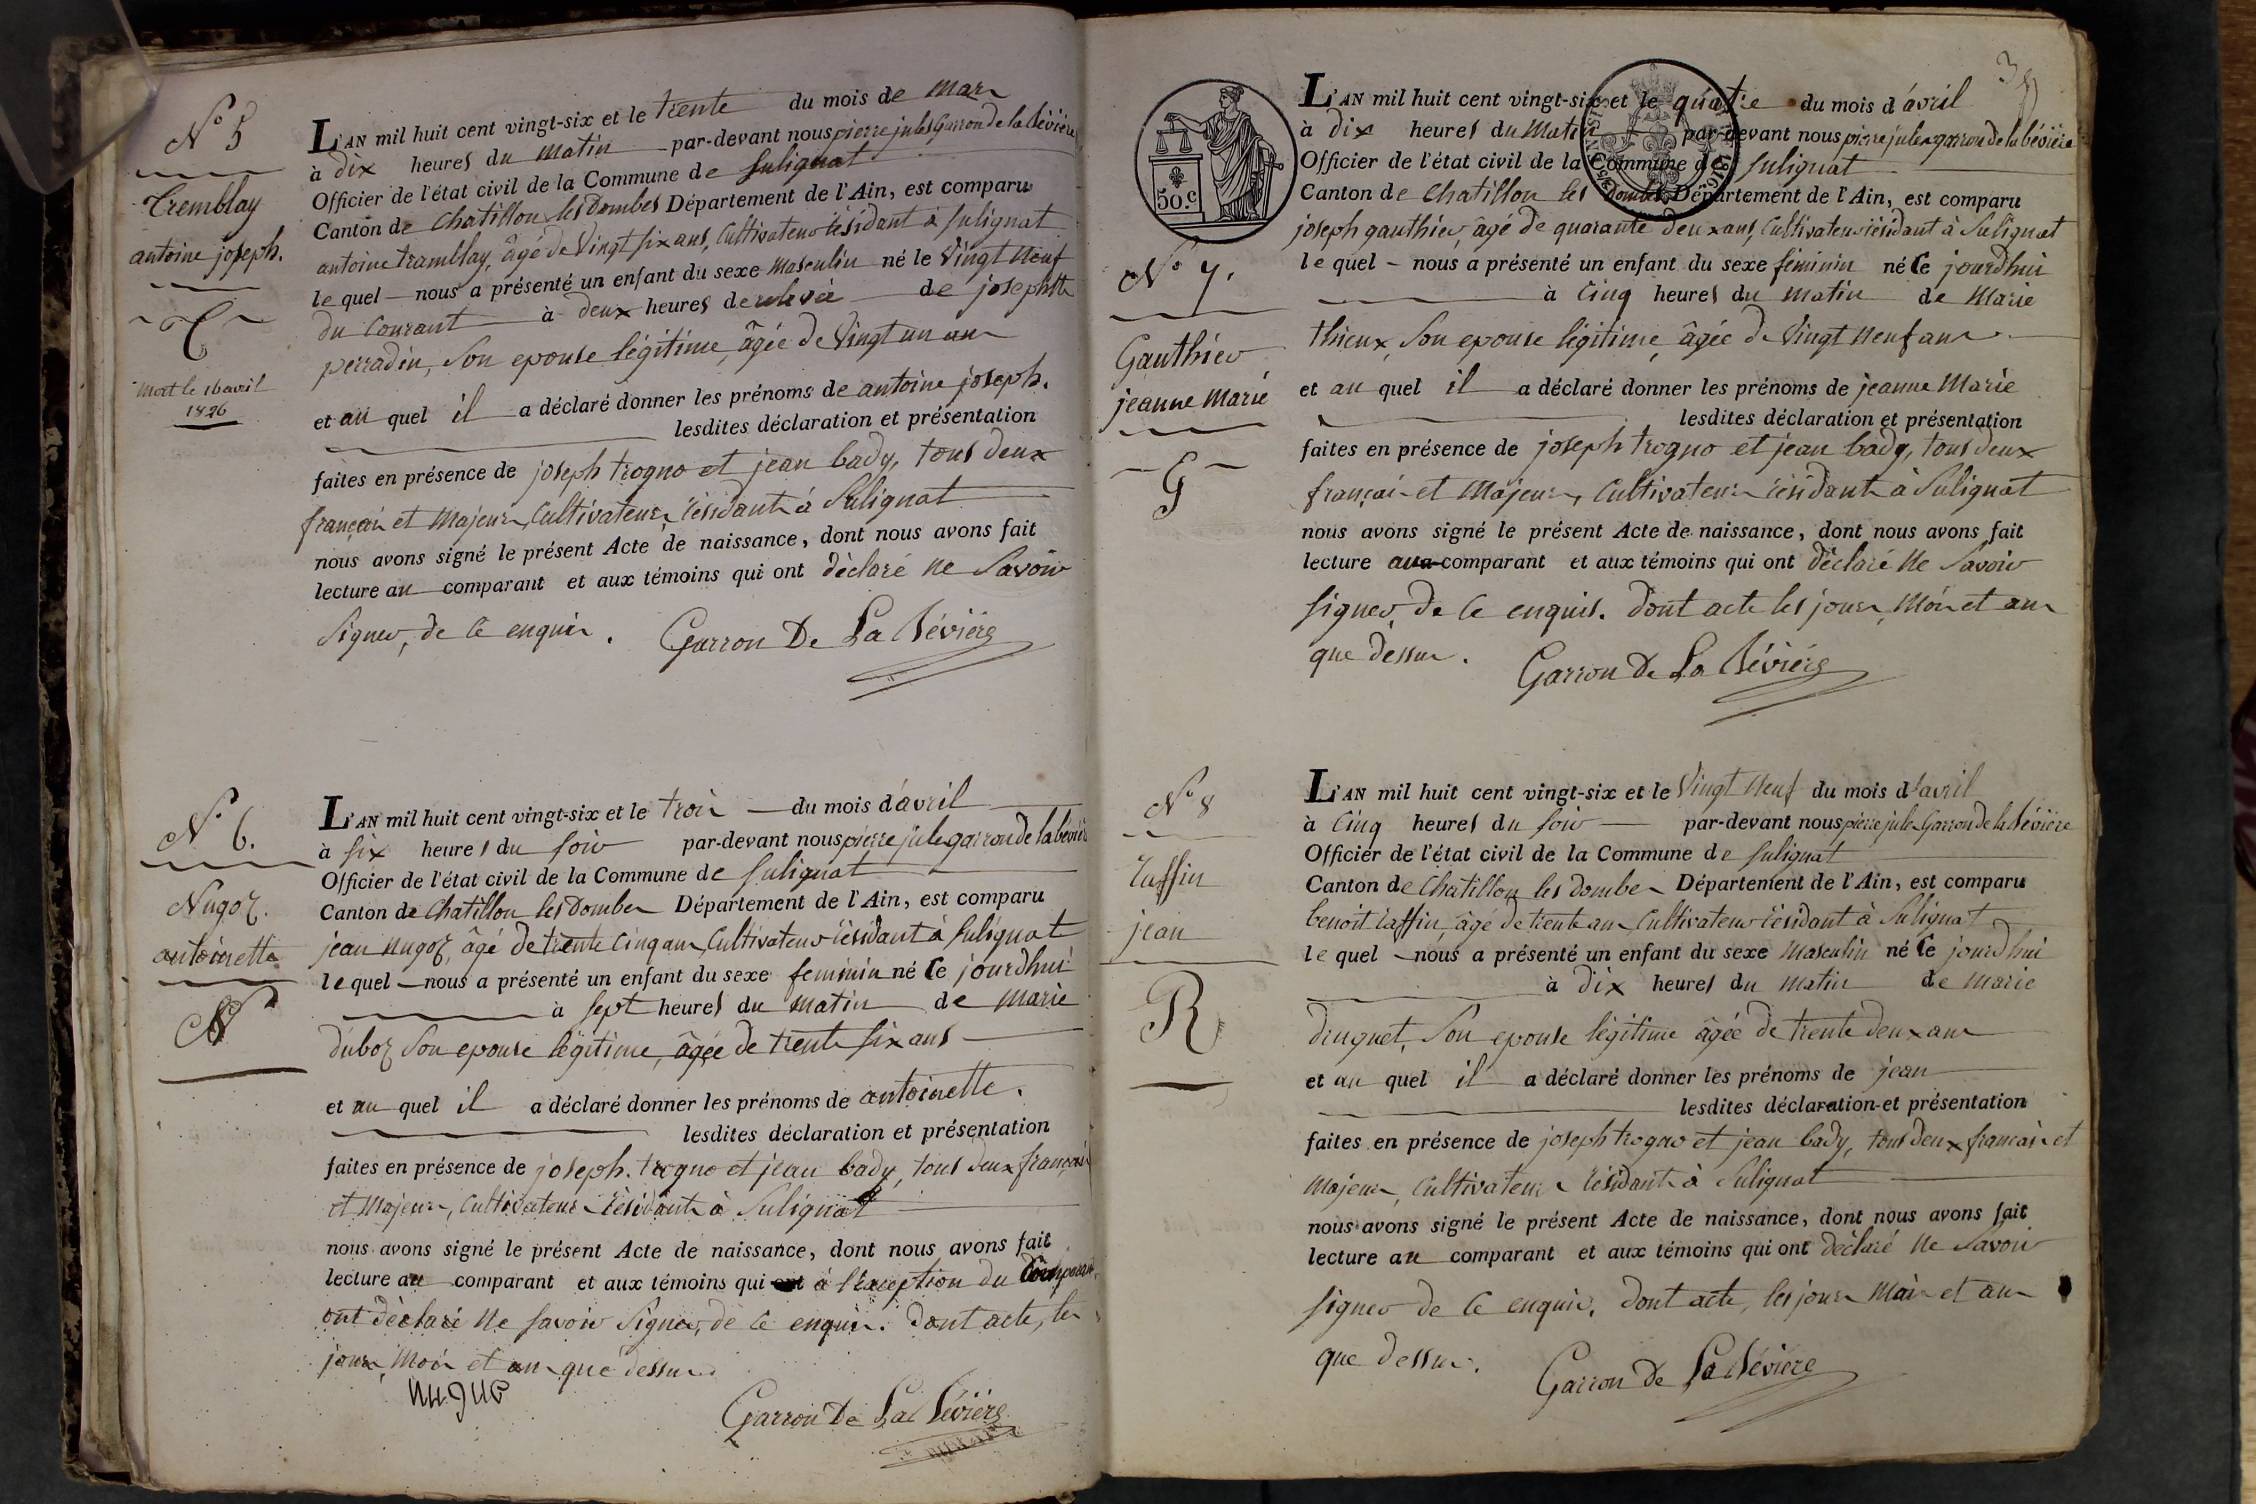 N° 5
Tremblay
antoine joseph.
T
mort le 16 avril
1826
L'AN mil huit cent vingt-six et le trente du mois de mars
à dix heures du matin par-devant nous pierre jules Garron de la bévière
Officier de l'état civil de la Commune de Sulignat
Canton de Chatillon les dombes Département de l'Ain, est comparu
antoine tramblay, âgé de vingt six ans, cultivateur résidant à Sulignat
le quel nous a présenté un enfant du sexe masculin né le vingt neuf
du courant à deux heures de relevée de josephte
perradin, son epouse légitime, âgée de vingt un ans
et au quel il a déclaré donner les prénoms de antoine joseph.
lesdites déclaration et présentation
faites en présence de joseph trogno et jean bady, tous deux
français et majeurs, cultivateurs résidants à Sulignat
nous avons signé le présent Acte de naissance, dont nous avons fait
lecture au comparant et aux témoins qui ont déclaré ne savoir
signer, de ce enquis. Garron De La Bévière
N° 6.
Nugoz.
antoinette
N
L'AN mil huit cent vingt-six et le trois du mois d'avril
à six heures du soir par-devant nous pierre jules garron de la bévière
Officier de l'état civil de la Commune de Sulignat
Canton de Chatillon les dombes Département de l'Ain, est comparu
jean nugoz, âgé de trente cinq ans, cultivateur résidant à Sulignat
le quel nous a présenté un enfant du sexe feminin né ce jourdhui
à sept heures du matin de marie
duboz son epouse légitime, âgée de trente six ans
et au quel il a déclaré donner les prénoms de antoinette.
lesdites déclaration et présentation
faites en présence de joseph. trogno et jean bady, tous deux français
et majeurs, cultivateurs résidants à Sulignat
nous avons signé le présent Acte de naissance, dont nous avons fait
lecture au comparant et aux témoins qui à l'exception du comparant,
ont déclaré ne savoir signer, de ce enquis. dont acte, les
jours, mois et ans que dessus.
Garron De La Bévière
38
50.c
N° 7.
Gauthier
jeanne Marie
G
L'AN mil huit cent vingt-six et le quatre du mois d'avril
à dix heures du matin par-devant nous pierre jules garron de la bévière
Officier de l'état civil de la Commune de Sulignat
Canton de Chatillon les dombes Département de l'Ain, est comparu
joseph gauthier, âgé de quarante deux ans, cultivateur résidant à Sulignat
le quel nous a présenté un enfant du sexe féminin né ce jourdhui
à cinq heures du matin de Marie
thieux, son epouse légitime, âgée de vingt neuf ans
et au quel il a déclaré donner les prénoms de jeanne Marie
lesdites déclaration et présentation
faites en présence de joseph trogno et jean bady, tous deux
français et majeurs, cultivateurs résidants à Sulignat
nous avons signé le présent Acte de naissance, dont nous avons fait
lecture au comparant et aux témoins qui ont déclaré ne savoir
signer, de ce enquis. dont acte les jours, mois et ans
que dessus. Garron De La Bévière
N° 8
raffin
jean
R
L'AN mil huit cent vingt-six et le vingt neuf du mois d'avril
à cinq heures du soir par-devant nous pierre jules Garron de la bévière
Officier de l'état civil de la Commune de Sulignat
Canton de Chatillon les dombes Département de l'Ain, est comparu
benoit raffin, âgé de trente ans, cultivateur résidant à Sulignat
le quel nous a présenté un enfant du sexe masculin né ce jourdhui
à dix heures du matin de marie
druguet, son epouse légitime âgée de trente deux ans
et au quel il a déclaré donner les prénoms de jean
lesdites déclaration et présentation
faites en présence de joseph trogno et jean bady, tous deux français et
majeurs, cultivateurs résidants à Sulignat
nous avons signé le présent Acte de naissance, dont nous avons fait
lecture au comparant et aux témoins qui ont déclaré ne savoir
signer de ce enquis. dont acte, les jours mois et ans
que dessus. Garron De La Bévière